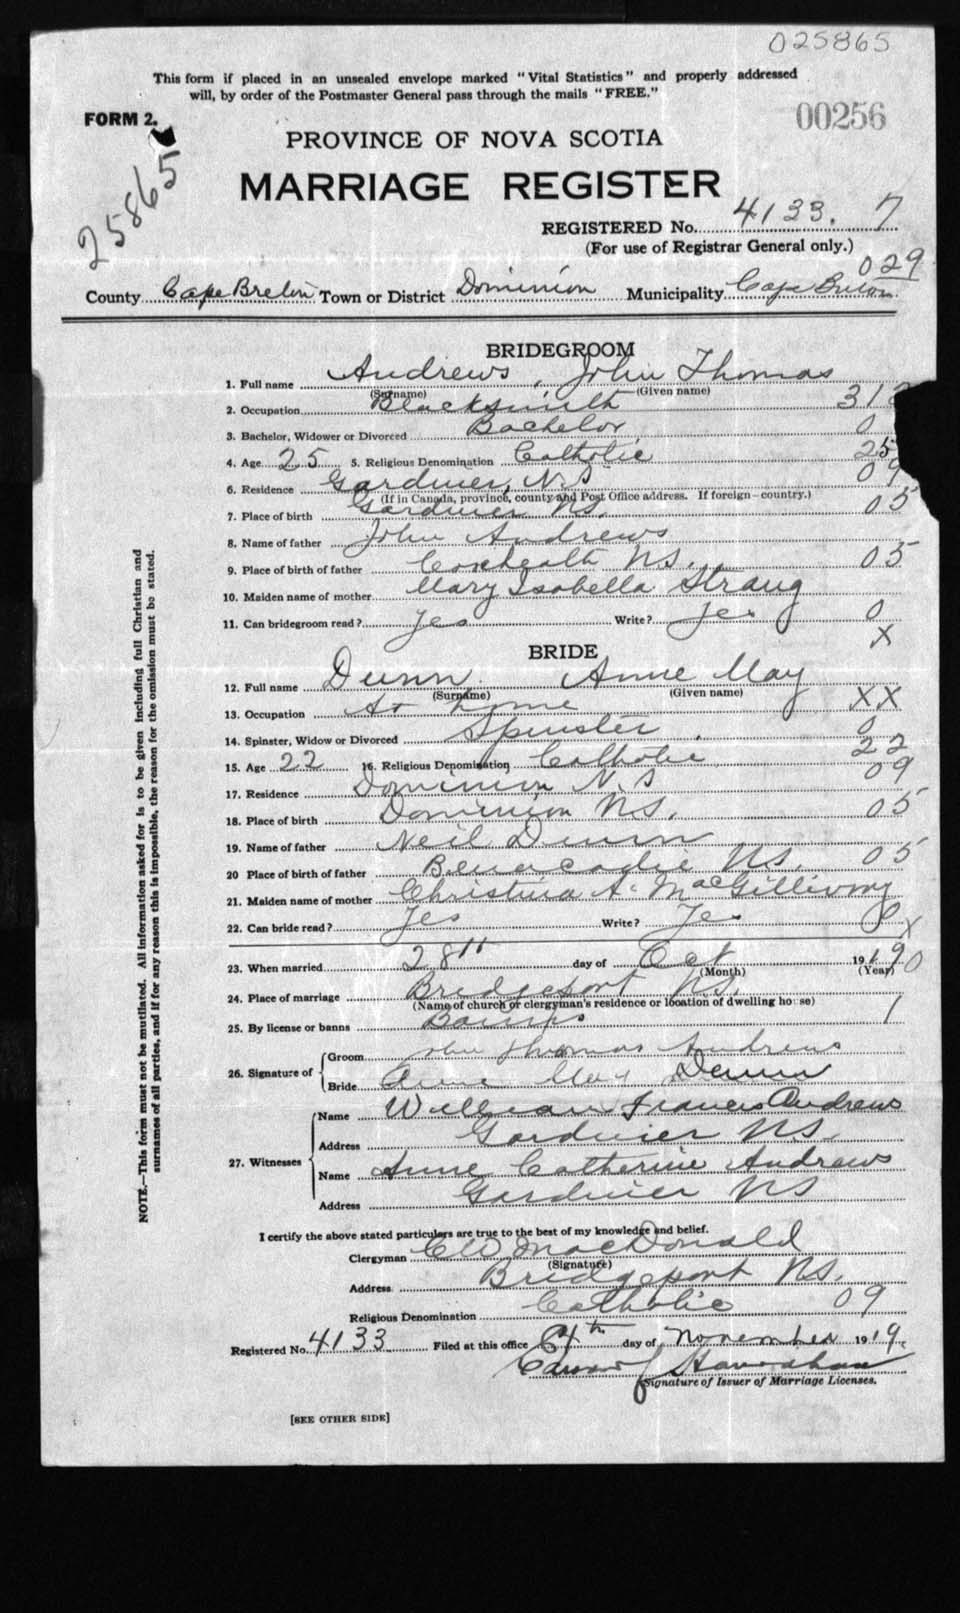 025865
This form if placed in an unsealed envelope marked "Vital Statistics" and properly addressed
will, by order of the Postmaster General pass through the mails "FREE."
FORM 2.
00256
25865
PROVINCE OF NOVA SCOTIA
MARRIAGE REGISTER
REGISTERED No. 4133. 7
(For use of Registrar General only.)
029
County Cape Breton Town or District Dominion Municipality Cape Breton
BRIDEGROOM
1. Full name Andrews, John Thomas
(Surname) (Given name)
2. Occupation Blacksmith 31
3. Bachelor, Widower or Divorced Bachelor 0
4. Age 25 5. Religious Denomination Catholic 25
6. Residence Gardiner, N.S 09
(If in Canada, province, county and Post Office address. If foreign—country.)
7. Place of birth Gardiner NS. 05
8. Name of father John Andrews
9. Place of birth of father Coxheath NS. 05
10. Maiden name of mother Mary Isabella Strang
11. Can bridegroom read? Yes Write? Yes 0
X
BRIDE
12. Full name Dunn Anne May
(Surname) (Given name)
13. Occupation At home XX
14. Spinster, Widow or Divorced Spinster 0
15. Age 22 16. Religious Denomination Catholic 22
17. Residence Dominion N.S 09
18. Place of birth Dominion NS. 05
19. Name of father Neil Dunn
20 Place of birth of father Benacadie NS. 05
21. Maiden name of mother Christina A. MacGillivray
22. Can bride read? Yes Write? Yes 0
X
23. When married 28th day of Oct 1919 0
(Month) (Year)
24. Place of marriage Bridgeport NS.
(Name of church or clergyman's residence or location of dwelling house)
25. By license or banns Banns 1
26. Signature of Groom John Thomas Andrews
Bride Anne May Dunn
27. Witnesses Name William Francis Andrews
Address Gardiner NS
Name Anne Catherine Andrews
Address Gardiner NS
I certify the above stated particulars are true to the best of my knowledge and belief.
Clergyman CW MacDonald
(Signature)
Address Bridgeport NS.
Religious Denomination Catholic 09
Registered No. 4133 Filed at this office 4th day of November 1919.
Signature of Issuer of Marriage Licenses.
[SEE OTHER SIDE]
NOTE.—This form must not be mutilated. All information asked for is to be given including full Christian and
surnames of all parties, and if for any reason this is impossible, the reason for the omission must be stated.